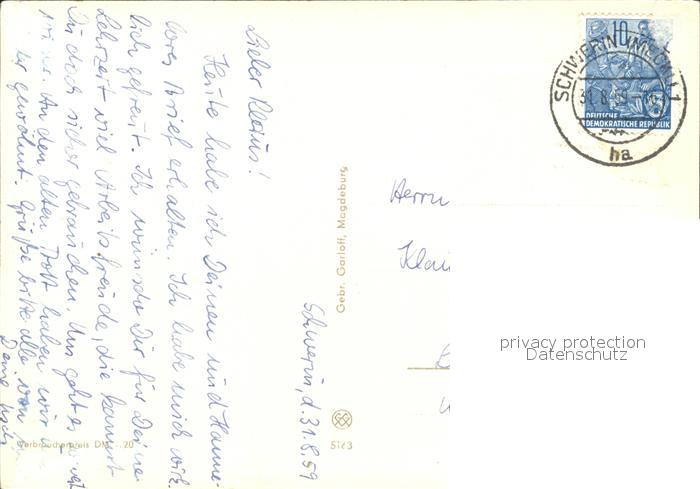 Schwerin, d. 31.8.59
Lieber Klaus!
Heute habe ich Deinen und Hanne-
lores Brief erhalten. Ich habe mich wirk-
lich gefreut. Ich wünsche Dir für Deine
Lehrzeit viel Arbeitsfreude, die kannst
Du doch sicher gebrauchen. Uns geht es
An den alten Trott haben wir
gewöhnt. Grüße bitte alle von
Deine
Verbraucherpreis DM -.20
Gebr. Garloff, Magdeburg
5163
10
DEUTSCHE
DEMOKRATISCHE REPUBLIK
SCHWERIN (MECKL) 1
31.8.59
ha
Herrn
privacy protection
Datenschutz